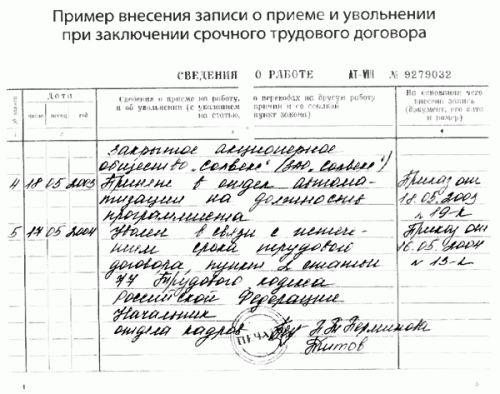 Пример внесения записи о приеме и увольнении
при заключении срочного трудового договора
СВЕДЕНИЯ О РАБОТЕ АТ-VIII № 9279032
Дата
число месяц год
Сведения о приеме на работу, о переводах на другую работу
и об увольнении (с указанием причин и со ссылкой
на статью, пункт закона)
На основании чего
внесена запись
(документ, его
и номер)
2 4
Закрытое акционерное
общество "Солвекс" (ЗАО "Солвекс")
4 18 05 2003 Принят в отдел автома- Приказ от
тизации на должность 18.05.2003
программиста № 19-к
5 17 05 2004 Уволен в связи с истече- Приказ от
нием срока трудового 16.05.2004
договора, пункт 2 статьи № 13-к
77 Трудового кодекса
Российской Федерации
Начальник
отдела кадров Н.Т.Перминова
ПЕЧАТЬ
Титов